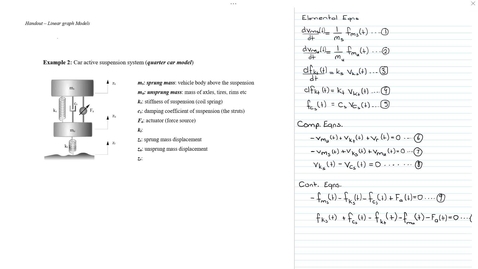 Handout – Linear graph Models
Example 2: Car active suspension system (quarter car model)
mₛ: sprung mass: vehicle body above the suspension
mᵤ: unsprung mass: mass of axles, tires, rims etc
kₛ: stiffness of suspension (coil spring)
cₛ: damping coefficient of suspension (the struts)
Fₐ: actuator (force source)
kₜ:
zₛ: sprung mass displacement
zᵤ: unsprung mass displacement
zᵣ:
Elemental Eqns
dv_ms(t)/dt = 1/m_s f_ms(t) ... ①
dv_mu(t)/dt = 1/m_u f_mu(t) ... ②
df_ks(t)/dt = k_s v_ks(t) ... ③
df_kt(t) = k_t v_kt(t) ... ④
f_cs(t) = C_s v_cs(t) ... ⑤
Comp. Eqns.
-v_mu(t) + v_kt(t) + v_r(t) = 0 ... ⑥
-v_ms(t) + v_ks(t) + v_mu(t) = 0 ... ⑦
v_ks(t) - v_cs(t) = 0 ...... ⑧
Cont. Eqns.
-f_ms(t) - f_ks(t) - f_cs(t) + F_a(t) = 0 ... ⑨
f_ks(t) + f_cs(t) - f_kt(t) - f_mu(t) - F_a(t) = 0 ...